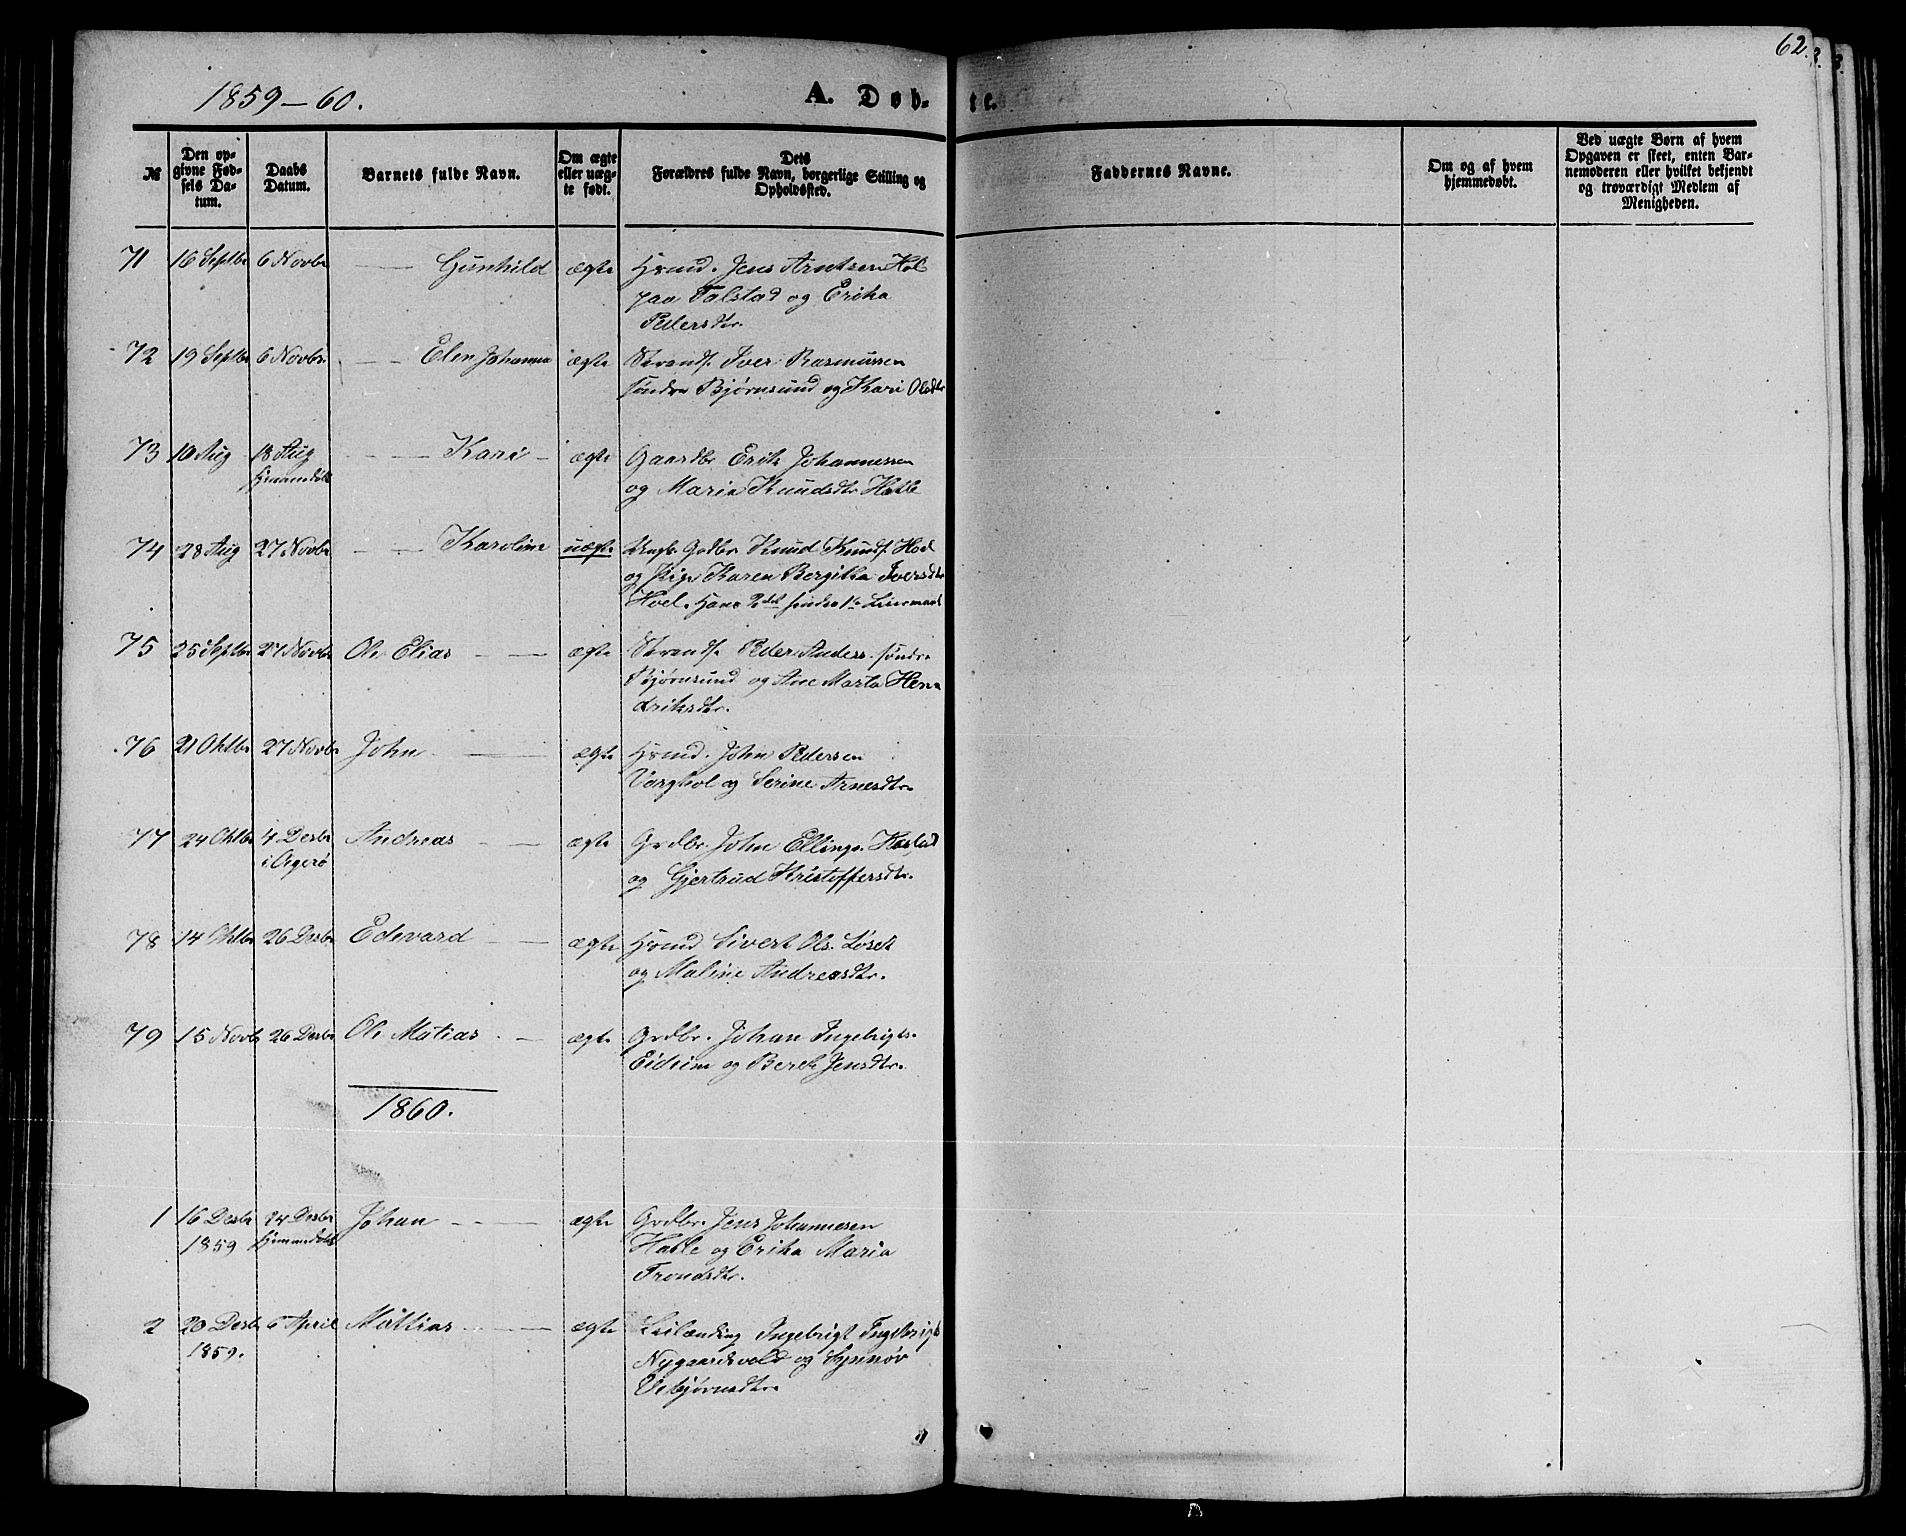 62.
1859-60.
A. Døb-
te.
№
Den op-
givne Fød-
sels Da-
tum.
Daabs
Datum.
Barnets fulde Navn.
Om ægte
eller uæg-
te født.
Dets
Forældres fulde Navn, borgerlige Stilling og
Opholdssted.
Faddernes Navne.
Om og af hvem
hjemmedøbt.
Ved uægte Børn af hvem
Opgaven er skeet, enten Bar-
nemoderen eller hvilket bekjendt
og troværdigt Medlem af
Menigheden.
71 16 Septbr 6 Novbr Gunhild ægte Hsmd. Jens Arntsen Hol
paa Talstad og Erika
Pedersdtr.
72 19 Septbr 6 Novbr Elen Johanna ægte Strands. Iver Rasmussen
søndre Bjørnsund og Kari Olsdtr
73 10 Aug 18 Aug Kari ægte Gaardbr Erik Johannessen
hjemmedøbt og Maria Knudsdtr Hatle
74 28 Aug 27 Novbr Karoline uægte Ungk. Grdbr. Knud Knuds. Hoel
og Pige Karen Bergitha Iversdtr
Hoel. Hans 2det hendes 1te Leiermaal
75 25 Septbr 27 Novbr Ole Elias ægte Strands. Peder Anders. søndre
Bjørnsund og Ane Marta Hen-
driksdtr.
76 21 Oktbr 27 Novbr John ægte Hsmd. John Pedersen
Varghol og Serine Arnesdtr.
77 24 Oktbr 4 Desbr Andreas ægte Grdbr. John Ellings. Harstad
i Agerø og Gjertrud Kristoffersdtr.
78 14 Oktbr 26 Desbr Edevard ægte Hsmd Sivert Ols. Løset
og Maline Andreasdtr.
79 15 Novbr 26 Desbr Ole Matias ægte Grdbr. Johan Ingebrigts.
Eideim og Beret Jensdtr.
1860.
1 16 Desbr 24 Desbr Johan ægte Grdbr. Jens Johannesen
1859 hjemmedøbt Hatle og Erika Maria
Trondsdtr.
2 20 Desbr 6 April Mattias ægte Leilænding Ingebrigt Ingebrigts
1859. Nygaardsvold og Synnøv
Vebjørnsdtr.